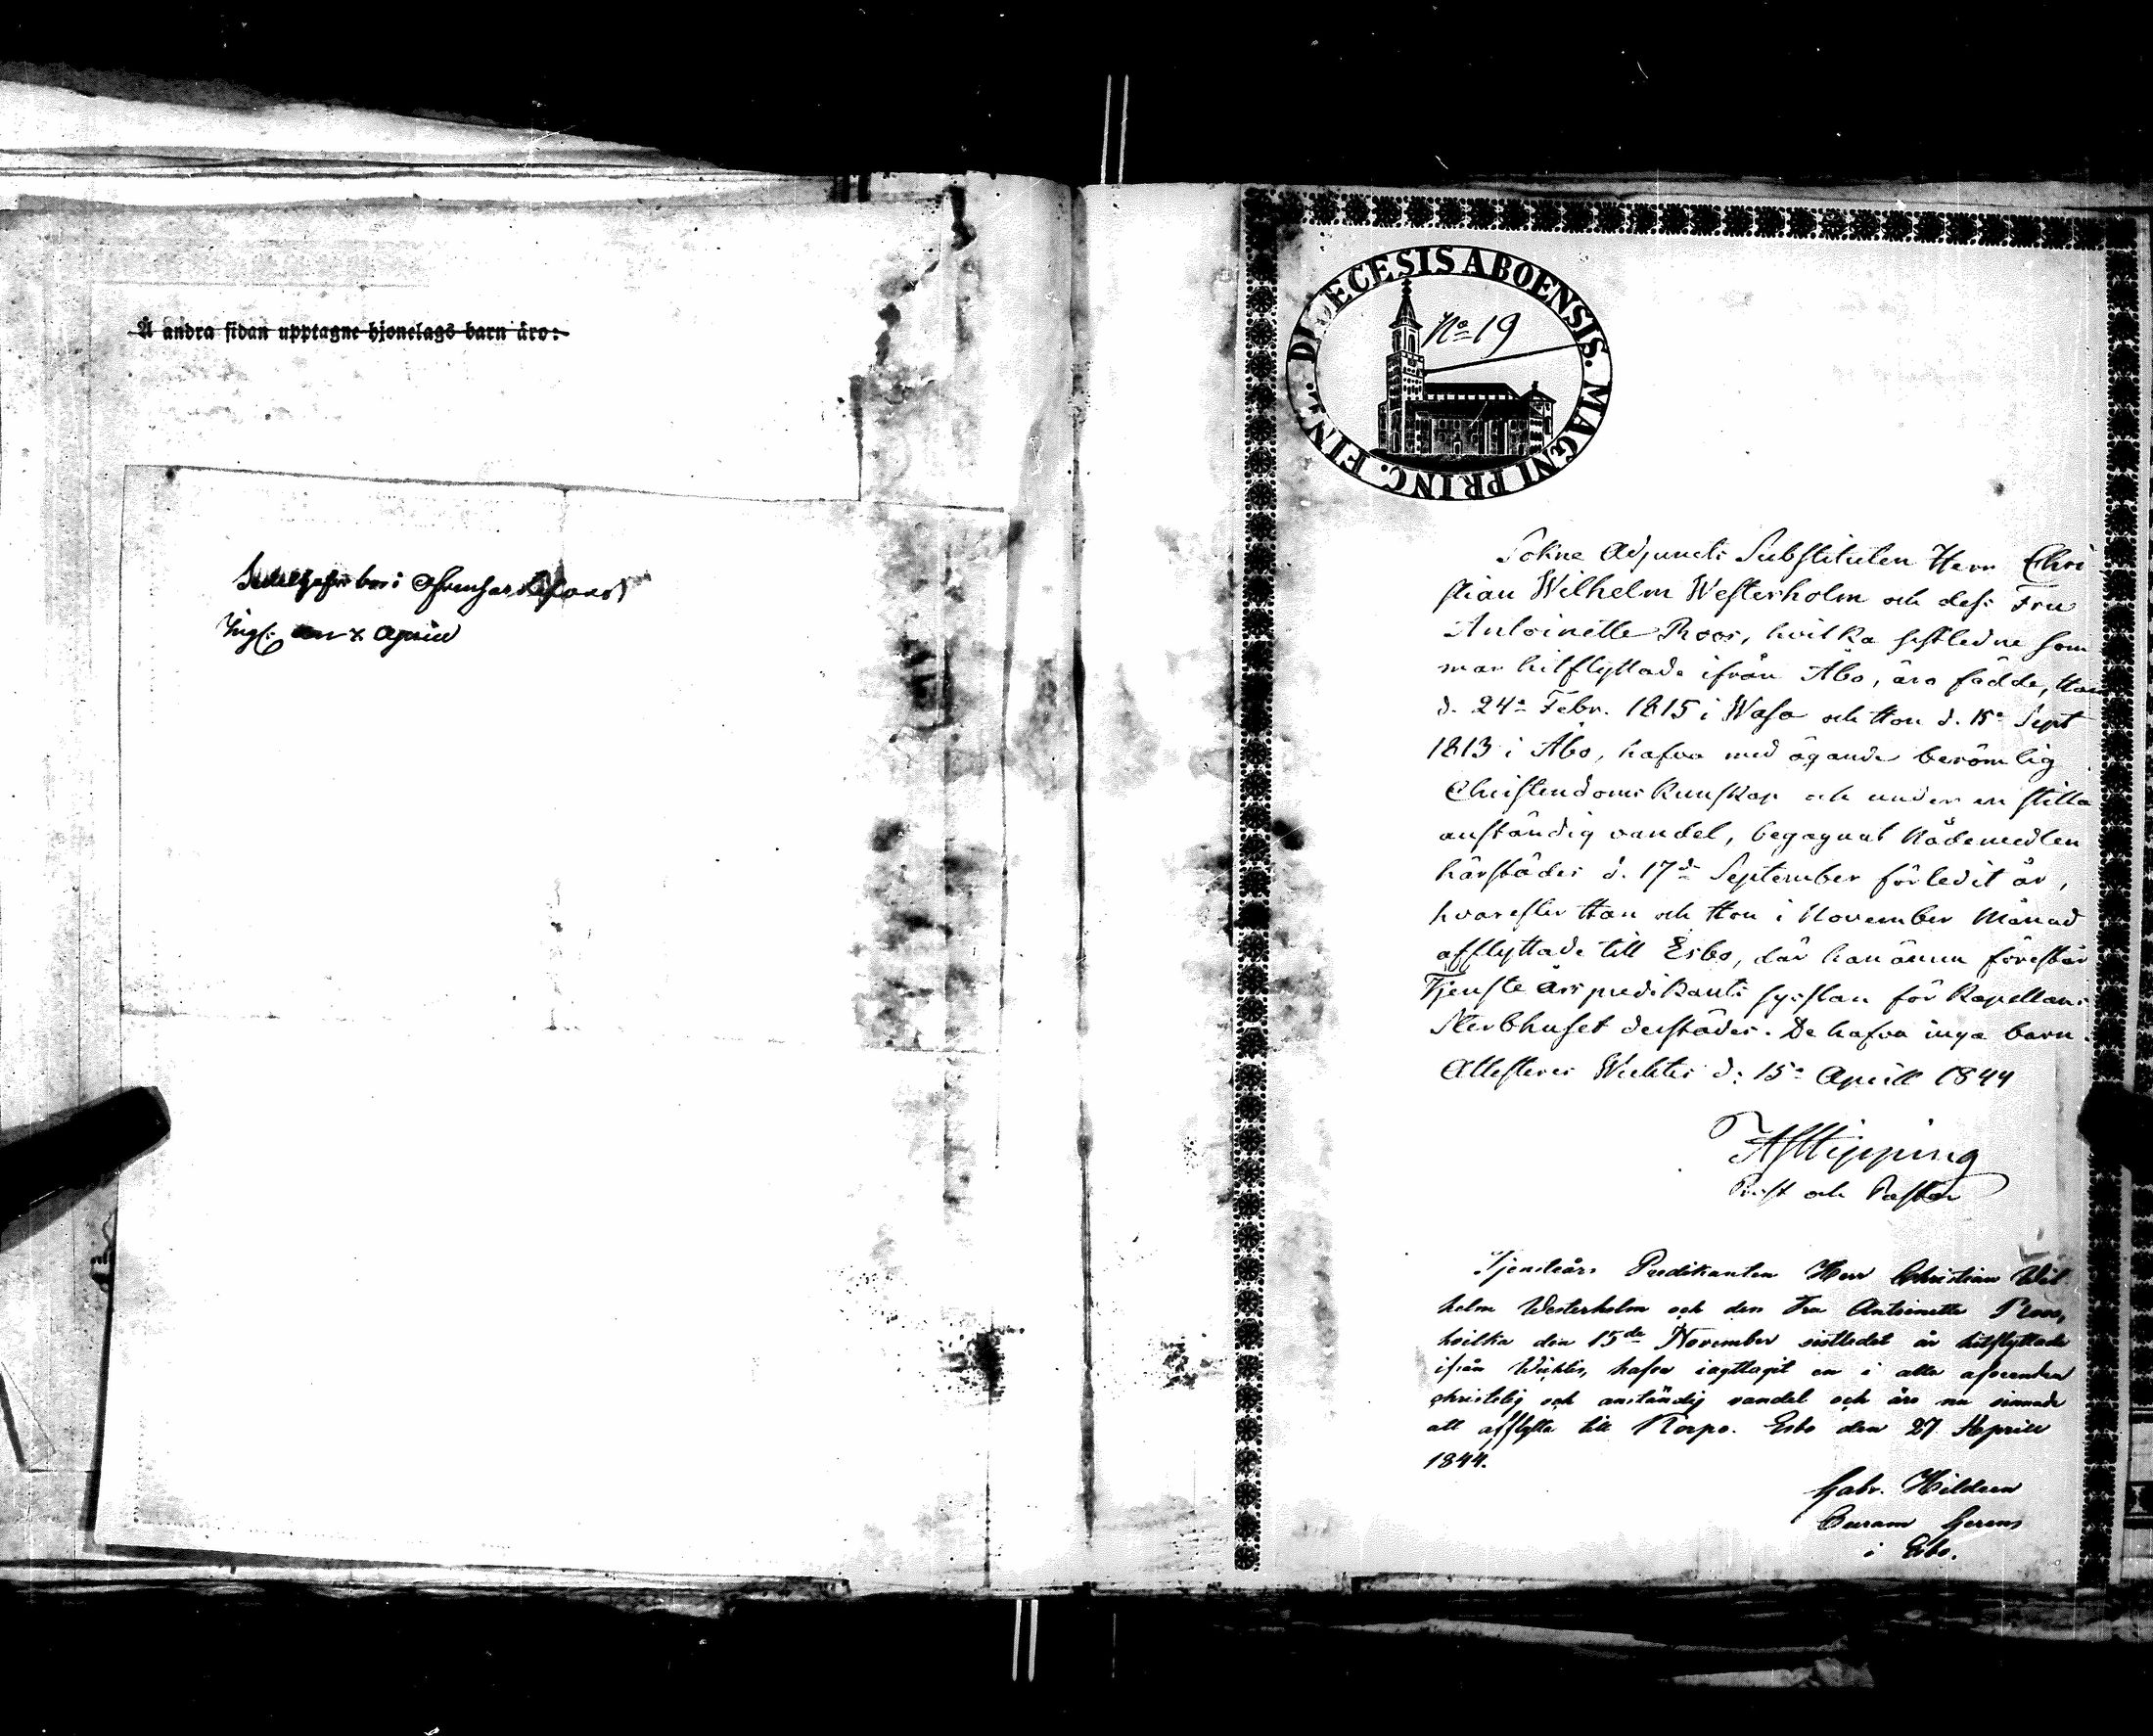 Å andra sidan upptagne hjonelags barn äro:
April
DIOECESIS ABOENSIS. MAGNI PRINC. FINL.
No 19
Sokne Adjuncts Substituten Herr Chri
stian Wilhelm Westerholm och dess Fru
Antoinette Roos, hvilka sistledne som
mar hitflyttade ifrån Åbo, äro födde, Han
d. 24e Febr. 1815 i Wasa och Hon d. 15e Sept
1813 i Åbo, hafva med ägande berömlig
Christendoms kunskap och under en stilla
anständig vandel, begagnat Nådemedlen
härstädes d. 17de September förledit år,
hvarefter Han och Hon i November Månad
afflyttade till Esbo, där han ännu förestår
Tjenste års predikants sysslan för Kapellans
Sterbhuset derstädes. De hafva inga barn.
Attesteras Wichtis d. 15e Aprill 1844
Hipping
Prost och Pastor
Tjensteårs Predikanten Herr Christian Wil
helm Westerholm och dess Fru Antoinette Roos,
hvilka den 15de November sistledet år hitflyttade
ifrån Wichtis, hafva iagttagit en i alla afseenden
christelig och anständig vandel och äro nu sinnade
att afflytta till Korpo. Esbo den 27 Aprill
1844.
Gabr. Hildeen
Curam Gerens
i Esbo.